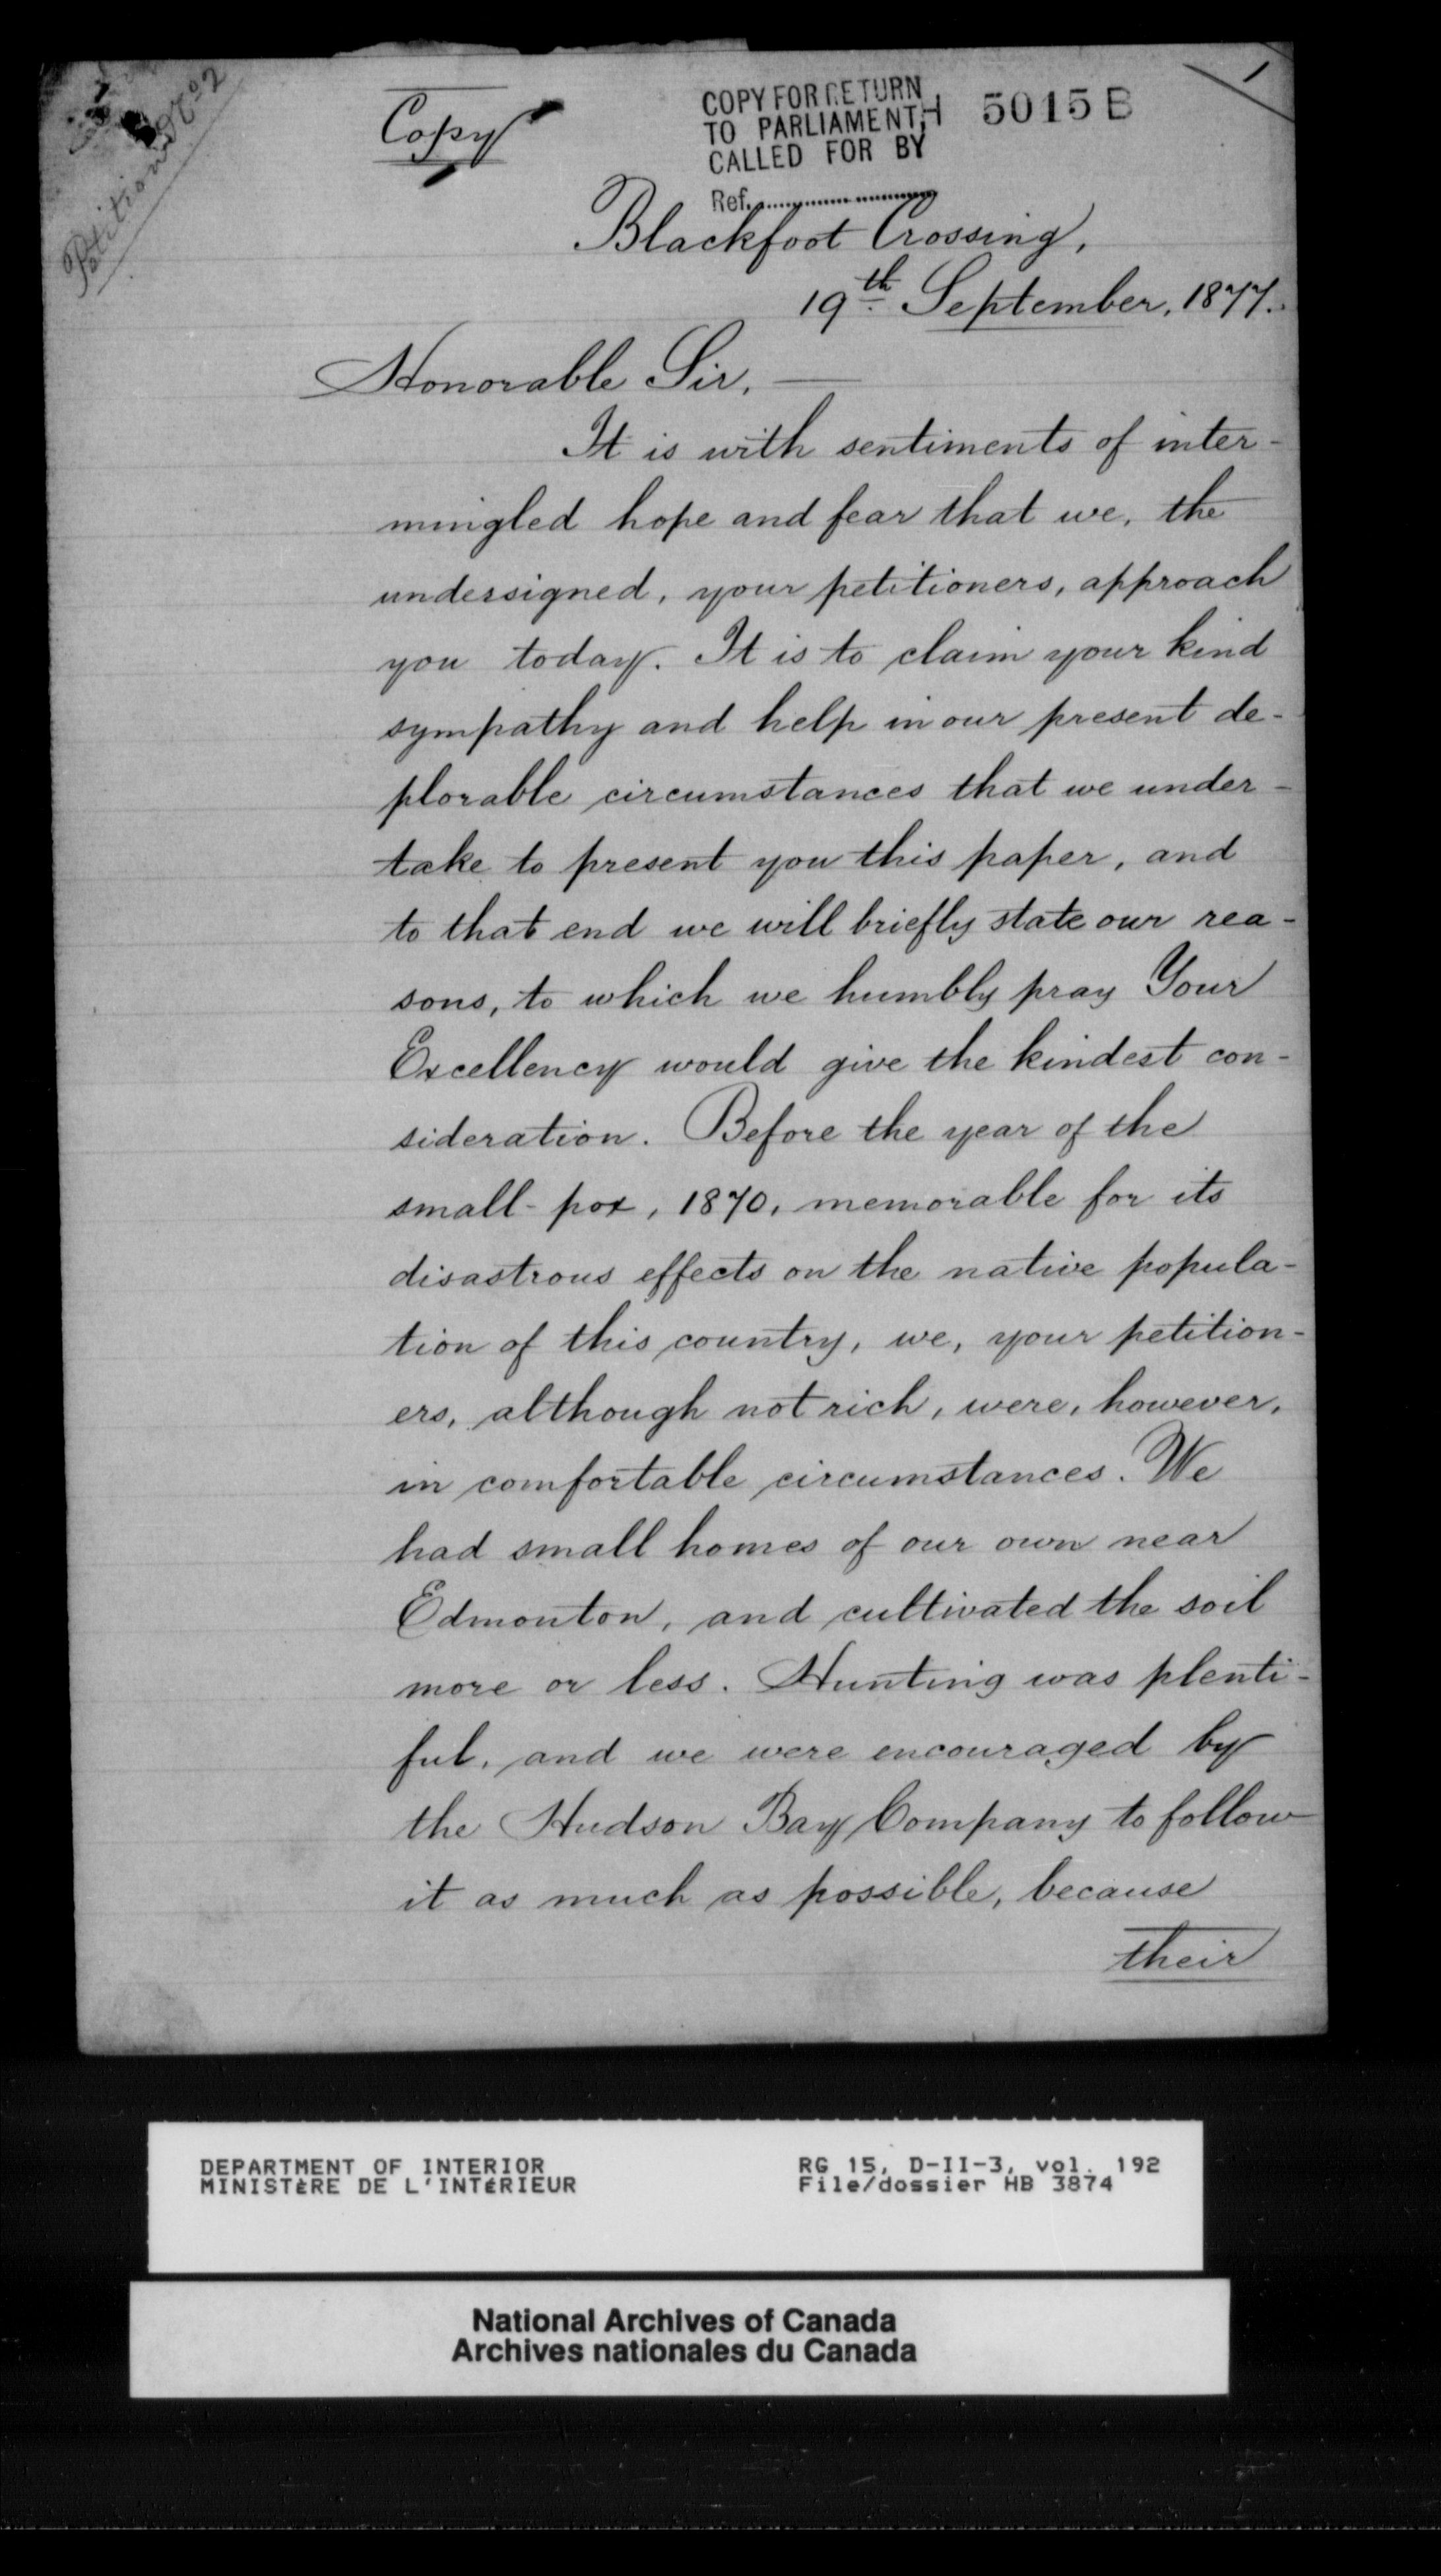 Petition No. 2
Copy
COPY FOR RETURN
TO PARLIAMENT
CALLED FOR BY
Ref.
H 5015 B
1
Blackfoot Crossing,
19th September, 1877.
Honorable Sir, —
It is with sentiments of inter-
mingled hope and fear that we, the
undersigned, your petitioners, approach
you today. It is to claim your kind
sympathy and help in our present de-
plorable circumstances that we under-
take to present you this paper, and
to that end we will briefly state our rea-
sons, to which we humbly pray Your
Excellency would give the kindest con-
sideration. Before the year of the
small-pox, 1870, memorable for its
disastrous effects on the native popula-
tion of this country, we, your petition-
ers, although not rich, were, however,
in comfortable circumstances. We
had small homes of our own near
Edmonton, and cultivated the soil
more or less. Hunting was plenti-
ful, and we were encouraged by
the Hudson Bay Company to follow
it as much as possible, because
their
DEPARTMENT OF INTERIOR
MINISTÈRE DE L'INTÉRIEUR
RG 15, D-II-3, vol. 192
File/dossier HB 3874
National Archives of Canada
Archives nationales du Canada